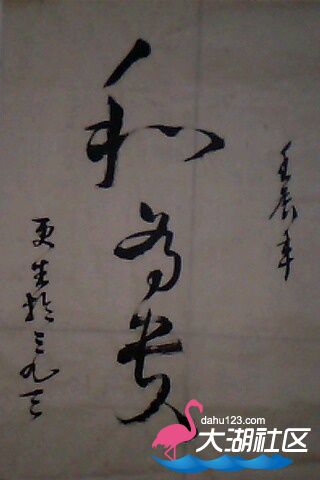 壬辰年
和为贵
更生於三九三
dahu123.com
大湖社区